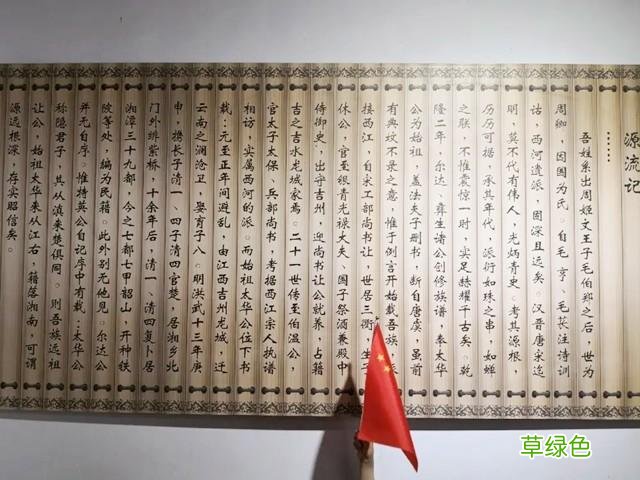 源流记
……
吾姓系出周姬文王子毛伯郑之后，世为
周卿，因国为氏。自毛亨、毛长注诗训
诂，西河遗派，固深且远矣。汉晋唐宋迄
明，莫不代有伟人，光炳青史。考其源根，
历历可据，承其年代，派衍如珠之串，如蝉
之联，不惟震惊一时，实足赫耀千古矣。乾
隆二年，尔达、彝生诸公创修族谱，奉太华
公为始祖，盖法夫子删书，断自唐虞，虽前
有典坟不录之意，惟于例言开始载吾族，派
接西江，自宋工部尚书让，世居三衢，生子
休公，官至银青光禄大夫、国子祭酒兼殿中
侍御史，出守吉州，迎尚书让公就养，占籍
吉之吉水龙城家焉。二十一世传至伯温公，
官太子太保、兵部尚书，考据西江宗人执谱
相访，实属西河的派。而始祖太华公位下书
载：元至正年间避乱，由江西吉州龙城，迁
云南之澜沧卫，娶育子八。明洪武十三年庚
申，携长子清一、四子清四官楚，居湘乡北
门外绯紫桥，十余年后，清一、清四复卜居
湘潭三十九都，今之七都七甲韶山，开种铁
陂等处，编为民籍。此外别无他见。尔达公
并无自序。惟特英公自记序中有载：太华公
称隐君子，其从滇来楚俱同。则吾族远祖
让公，始祖太华来从江右，籍落湘南，可谓
源远根深，存实昭信矣。
草绿色